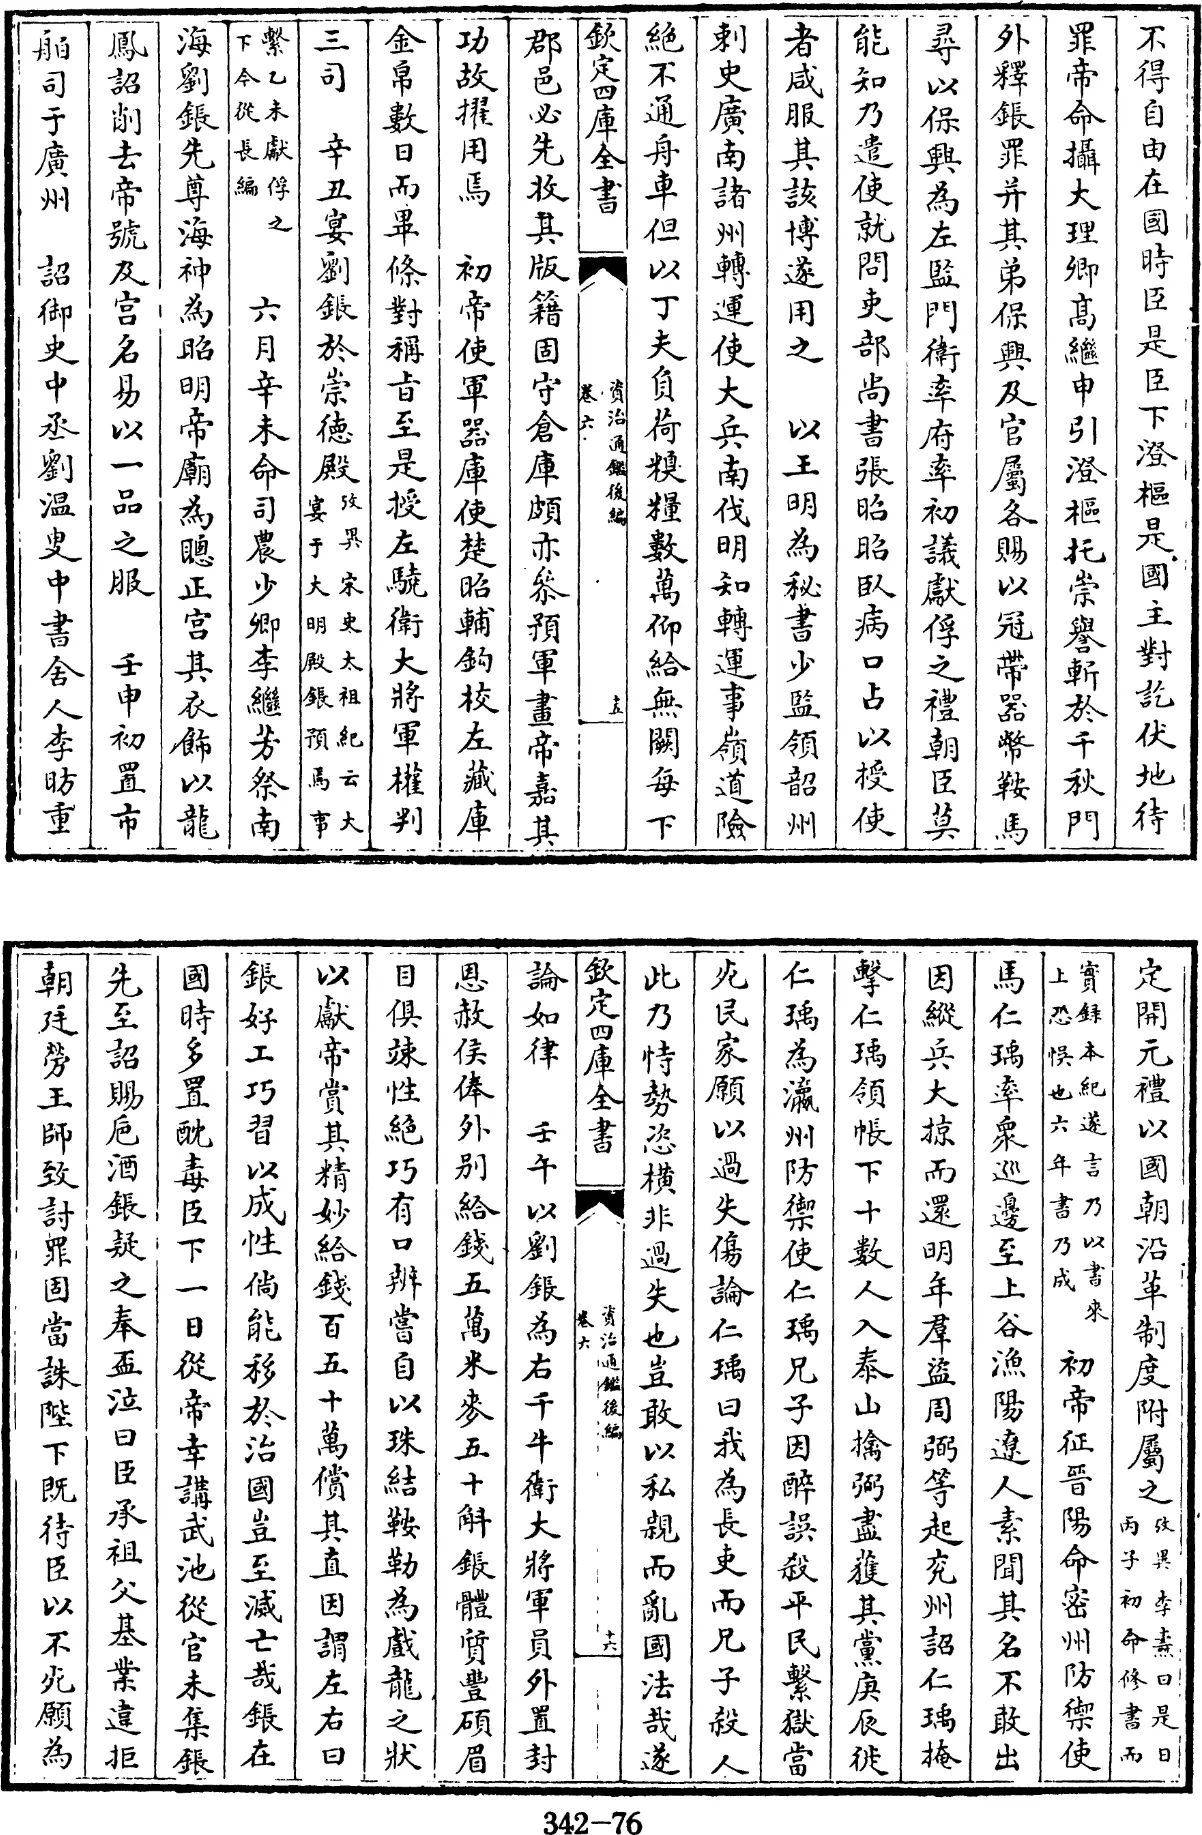 不得自由在國時臣是臣下澄樞是國主對訖伏地待
罪帝命攝大理卿髙繼申引澄樞托崇譽斬於千秋門
外釋鋹罪并其弟保興及官屬各賜以冠帶器幣鞍馬
尋以保興為左監門衛率府率初議獻俘之禮朝臣莫
能知乃遣使就問吏部尚書張昭昭臥病口占以授使
者咸服其該博遂用之　以王明為秘書少監領韶州
刺史廣南諸州轉運使大兵南伐明知轉運事嶺道險
絶不通舟車但以丁夫負荷糗糧數萬仰給無闕每下
欽定四庫全書
資治通鑑後編
卷六
十五
郡邑必先收其版籍固守倉庫頗亦叅預軍畫帝嘉其
功故擢用焉　初帝使軍器庫使楚昭輔鈎校左藏庫
金帛數日而畢條對稱旨至是授左驍衛大將軍權判
三司　辛丑宴劉鋹於崇德殿
攷異宋史太祖紀云大
宴于大明殿鋹預焉事
繫乙未獻俘之
下今從長編
六月辛未命司農少卿李繼芳祭南
海劉鋹先尊海神為昭明帝廟為聰正宫其衣飾以龍
鳳詔削去帝號及宫名易以一品之服　壬申初置市
舶司于廣州　詔御史中丞劉温叟中書舍人李昉重
定開元禮以國朝沿革制度附屬之
攷異李燾曰是日
丙子初命修書而
實録本紀遂言乃以書來
上恐悞也六年書乃成
初帝征晉陽命密州防禦使
馬仁瑀率衆巡邊至上谷漁陽遼人素聞其名不敢出
因縱兵大掠而還明年羣盜周弼等起兖州詔仁瑀掩
擊仁瑀領帳下十數人入泰山擒弼盡獲其黨庚辰徙
仁瑀為瀛州防禦使仁瑀兄子因醉誤殺平民繫獄當
死民家願以過失傷論仁瑀曰我為長吏而兄子殺人
此乃恃勢恣横非過失也豈敢以私親而亂國法哉遂
欽定四庫全書
資治通鑑後編
卷六
十六
論如律　壬午以劉鋹為右千牛衛大將軍員外置封
恩赦侯俸外别給錢五萬米麥五十斛鋹體質豐碩眉
目俱竦性絶巧有口辨嘗自以珠結鞍勒為戲龍之狀
以獻帝賞其精妙給錢百五十萬償其直因謂左右曰
鋹好工巧習以成性倘能移於治國豈至滅亡哉鋹在
國時多置酖毒臣下一日從帝幸講武池從官未集鋹
先至詔賜巵酒鋹疑之奉盃泣曰臣承祖父基業違拒
朝廷勞王師致討罪固當誅陛下既待臣以不死願為
342-76